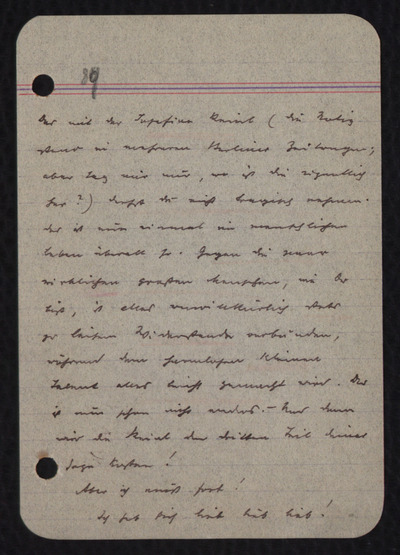 89
Das mit der Josefine Kainl (die Notiz
stand in mehreren Berliner Zeitungen;
aber sag mir nur, wo ist die eigentlich
her?) darfst du nicht tragisch nehmen.
das ist nun einmal im menschlichen
Leben überall so. Gegen die
wirklichen großen Menschen, wie Du
bist, ist alles unwillkürlich
zu leisem Widerstande verbunden,
während dem harmlosen kleinen
Talent alles leicht gemacht wird. Das
ist nun schon nicht anders. – Und dann
wär die den dritten Teil deiner
Sage kosten!
Aber ich muß fort!
Ich hab dich lieb lieb lieb!